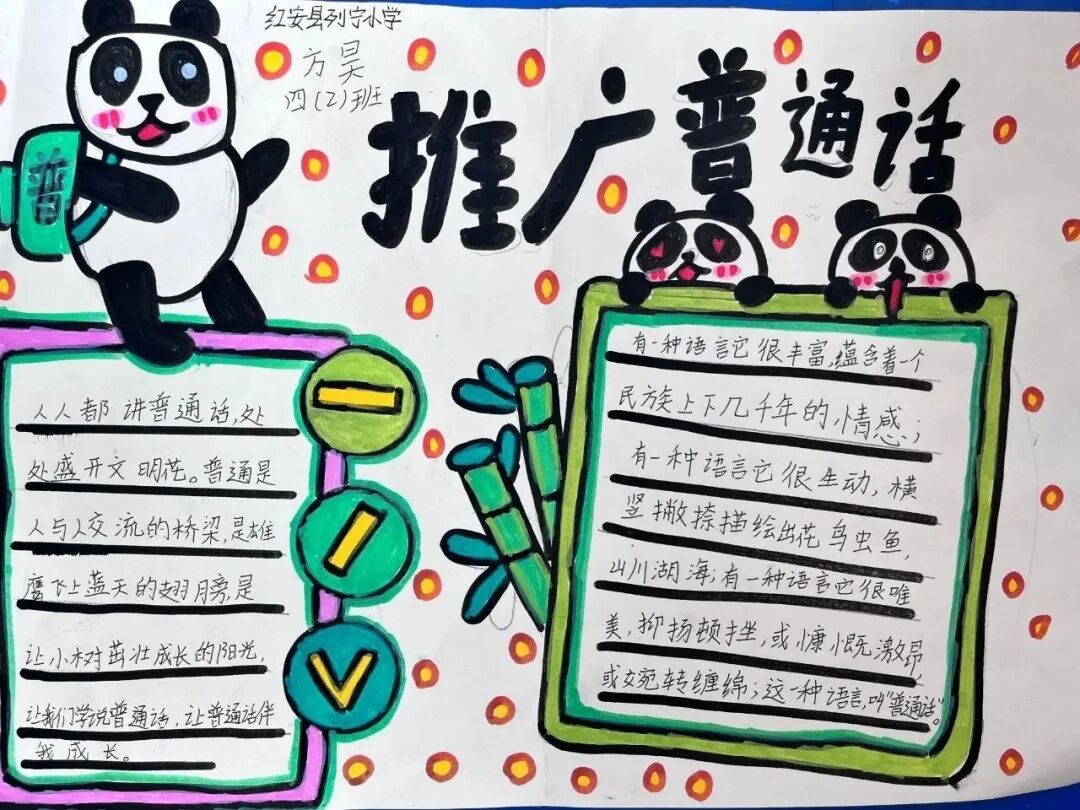 红安县列宁小学
方昊
四(2)班
推广普通话
普
人人都讲普通话,处
处盛开文明花。普通是
人与人交流的桥梁,是雄
鹰飞上蓝天的翅膀,是
让小树茁壮成长的阳光,
让我们学说普通话,让普通话伴
我成长。
有一种语言它很丰富,蕴含着一个
民族上下几千年的情感;
有一种语言它很生动,横
竖撇捺描绘出花鸟虫鱼,
山川湖海;有一种语言它很唯
美,抑扬顿挫,或慷慨激昂
或婉转缠绵;这一种语言,叫“普通话”。